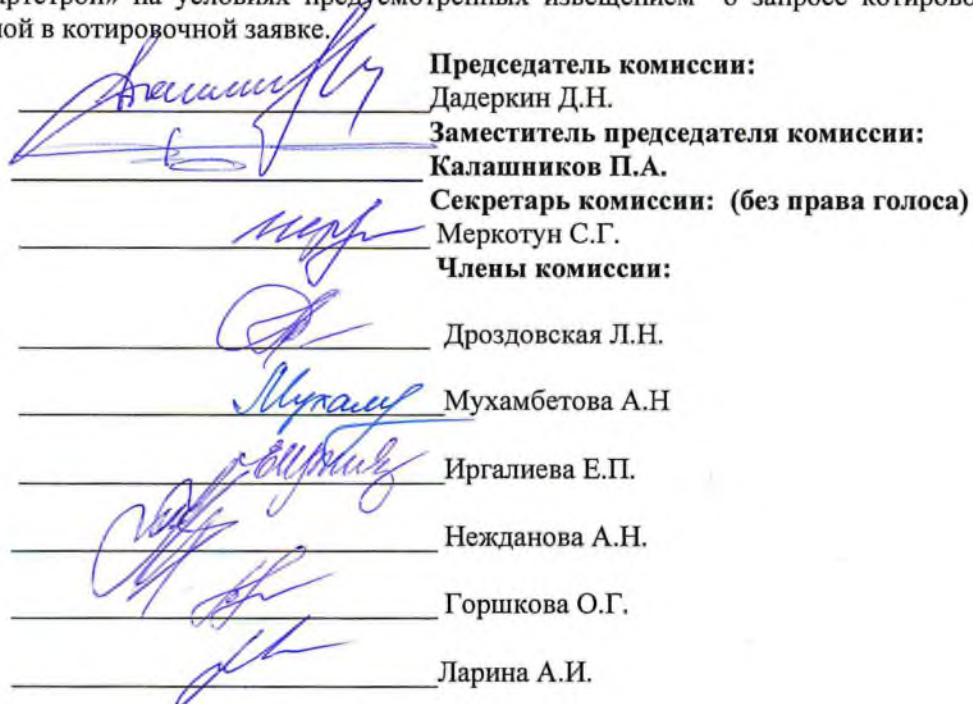 на условиях предусмотренных извещением о запросе
в котировочной заявке.
Председатель комиссии:
Дадеркин Д.Н.
Заместитель председателя комиссии:
Калашников П.А.
Секретарь комиссии: (без права голоса)
Меркотун С.Г.
Члены комиссии:
Дроздовская Л.Н.
Мухамбетова А.Н
Иргалиева Е.П.
Нежданова А.Н.
Горшкова О.Г.
Ларина А.И.